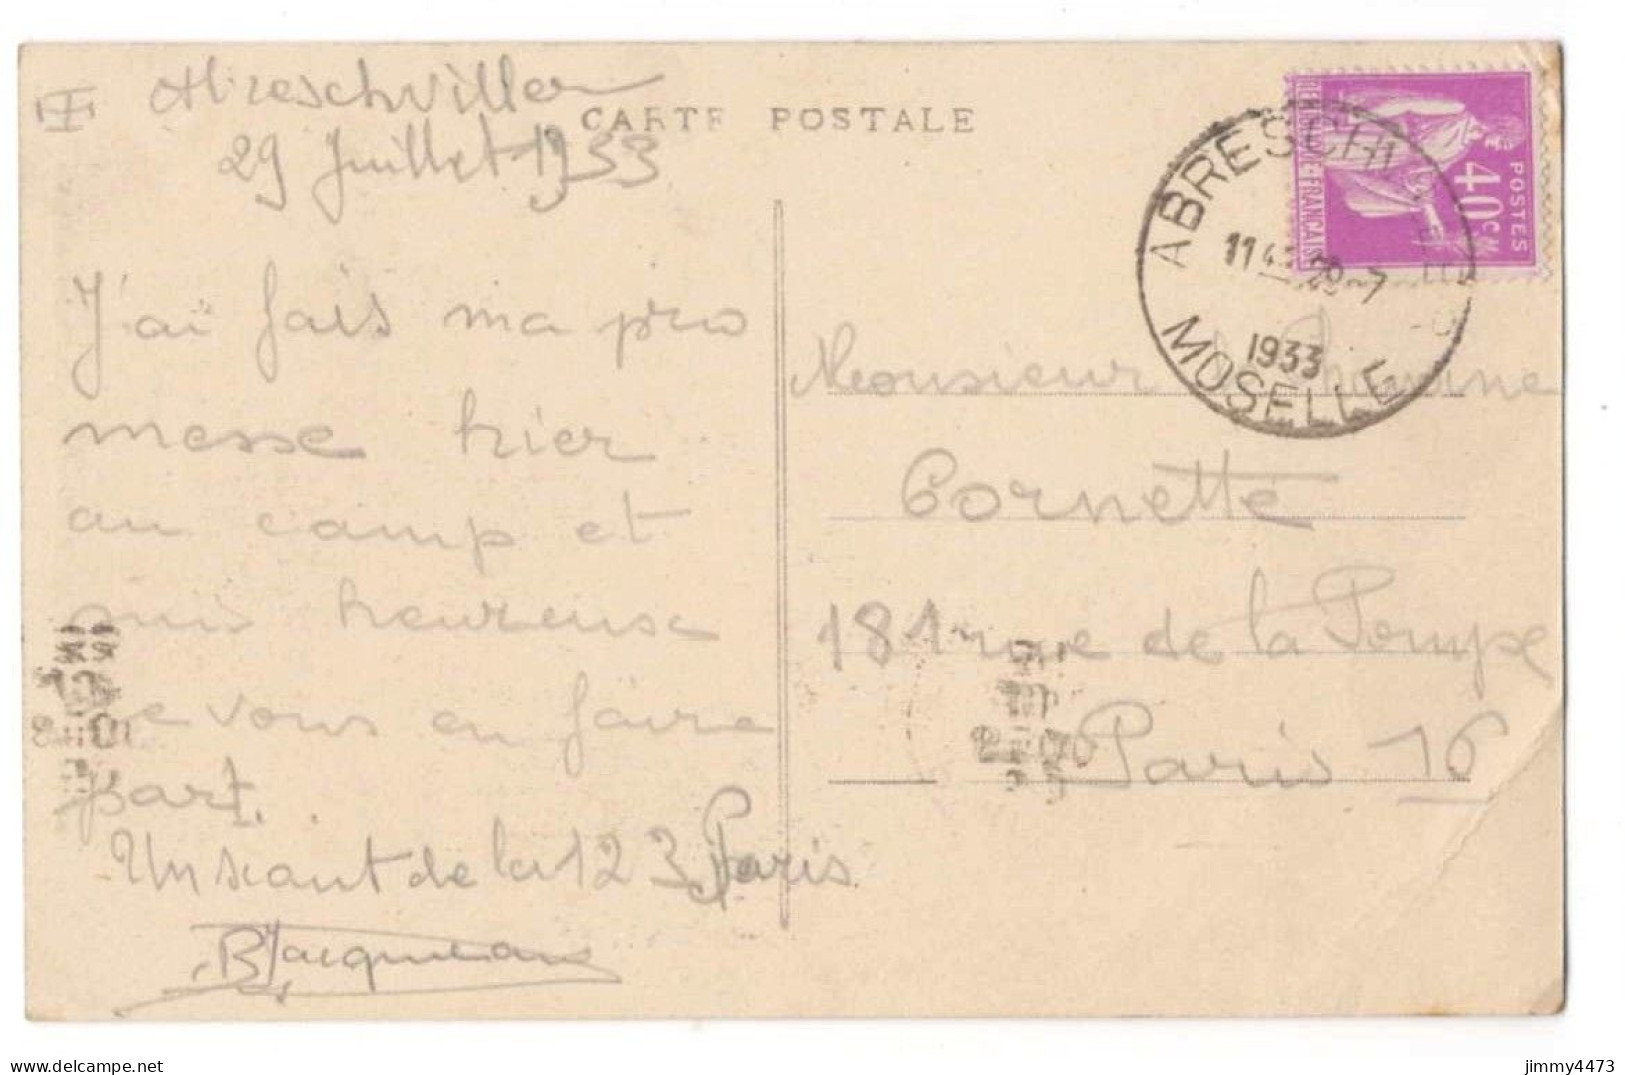 Abreschviller
29 Juillet 1933
CARTE POSTALE
J'ai fais ma pro
messe hier
au camp et
suis heureuse
de vous en faire
part.
Un scout de la 123 Paris
B Jacquineau
REPUBLIQUE-FRANÇAISE
40 CM
POSTES
ABRESCHVILLER
29-7
1933
MOSELLE
Monsieur
Cornette
181 rue de la Pompe
Paris 16
jimmy4473